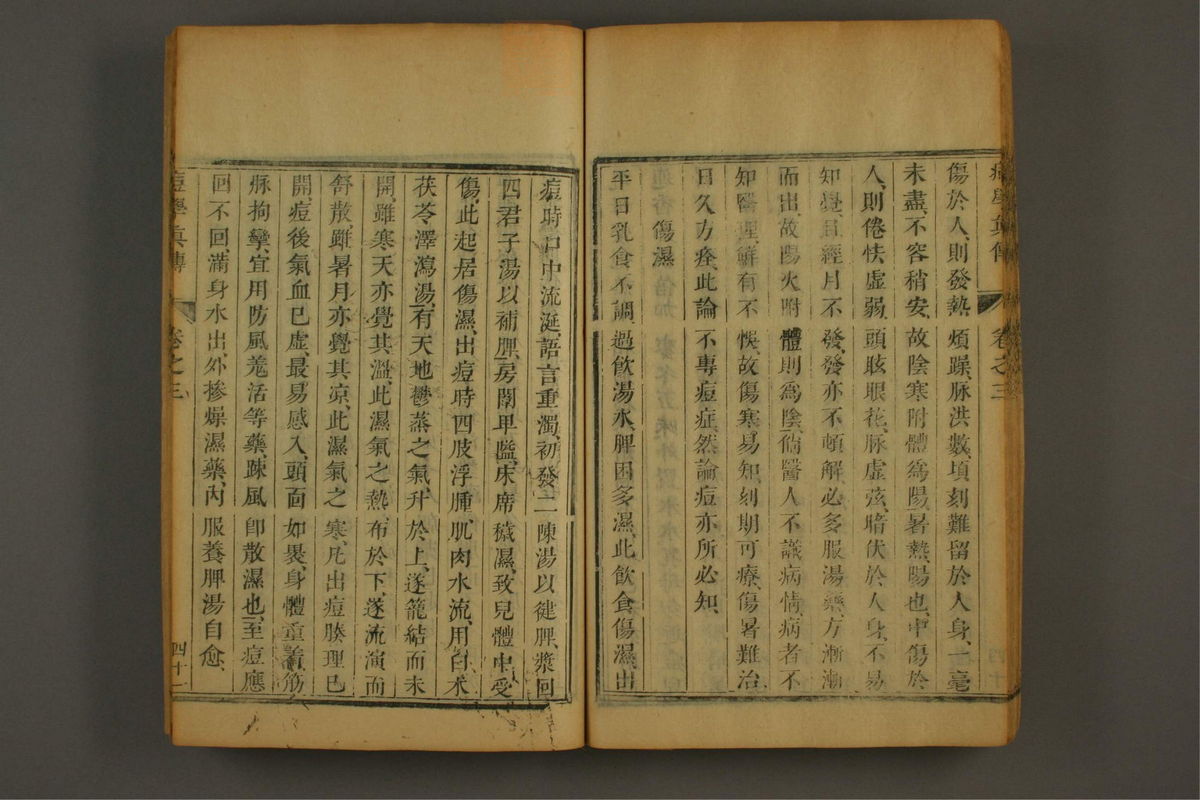 痘學眞傳 卷之三
傷於人、則發熱煩躁、脉洪數、頃刻難留於人身、一毫
未盡、不容稍安、故陰寒附體爲陽、暑熱陽也、中傷於
人、則倦怯虛弱、頭眩眼花、脉虛弦、暗伏於人身、不易
知覺、且經月不發、發亦不頓解、必多服湯藥、方漸漸
而出、故陽火附體則爲陰、倘醫人不識病情、病者不
知醫理、鮮有不悞、故傷寒易知、刻期可療、傷暑難治、
日久方痊、此論不專痘症、然論痘亦所必知、
傷濕
平日乳食不調、過飮湯水、脾困多濕、此飮食傷濕、出
痘時口中流涎、語言重濁、初發二陳湯以健脾、漿回
四君子湯以補脾、房闈卑隘、床席穢濕、致兒體中受
傷、此起居傷濕、出痘時四肢浮腫、肌肉水流、用白朮
茯苓澤瀉湯、有天地鬱蒸之氣、升於上、遂籠結而未
開、雖寒天亦覺其溫、此濕氣之熱、布於下、遂流演而
舒散、雖暑月亦覺其凉、此濕氣之寒、凡出痘腠理已
開、痘後氣血已虛、最易感入、頭面如褁、身體重著、筋
脉拘攣、宜用防風羌活等藥、疎風卽散濕也、至痘應
回不回、滿身水出、外摻燥濕藥、內服養脾湯自愈、
痘學眞傳 卷之三 四十一